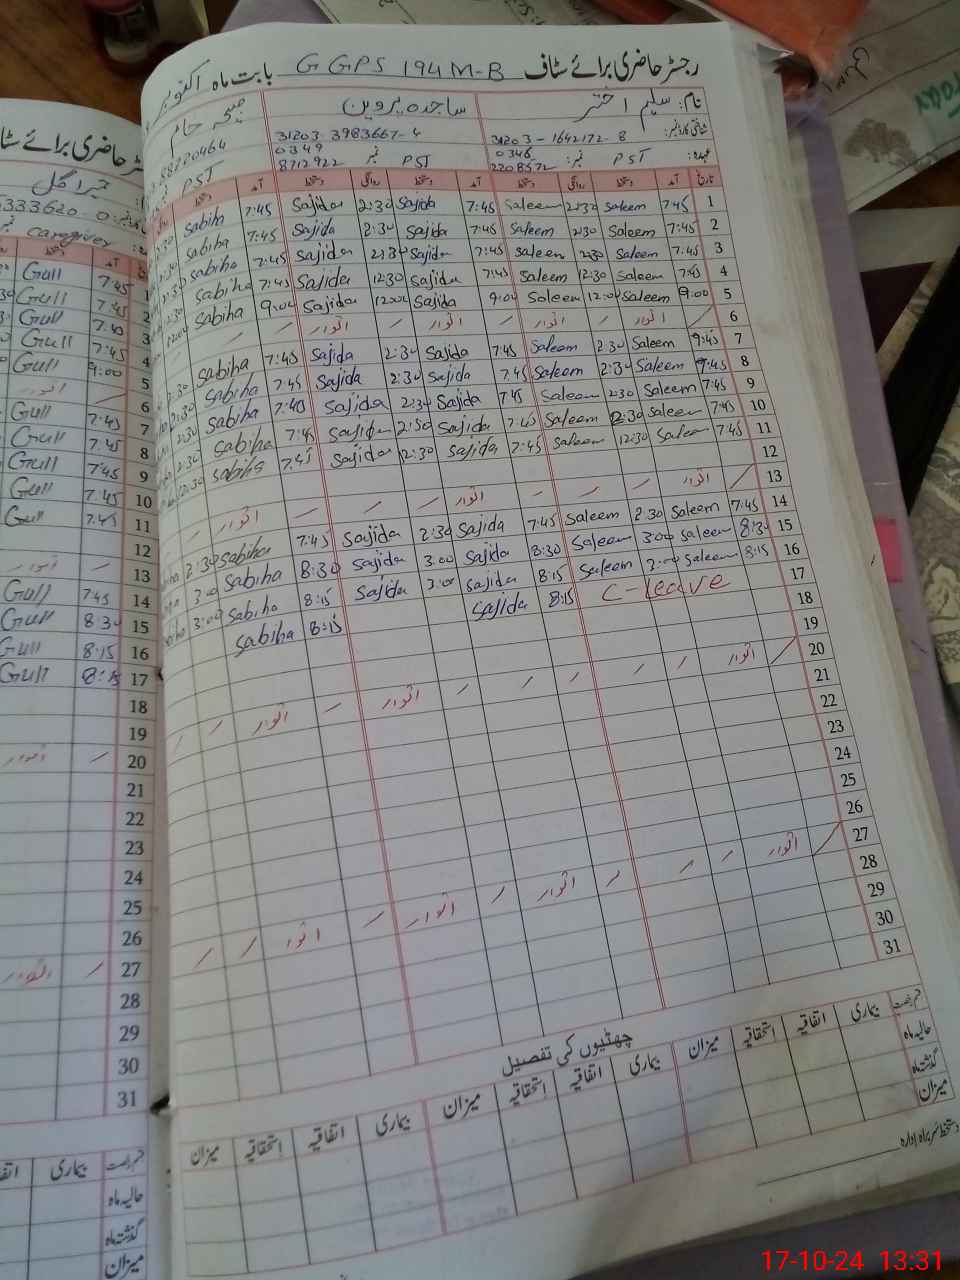 رجسٹر حاضری برائے سٹاف G GPS 194 M-B بابت ماہ اکتوبر
نام: سلیم اختر ساجدہ پروین
شناختی کارڈ نمبر: 31203-1642172-8 31203 3983667-4
عہدہ: PST نمبر: 0346 2208572 PST نمبر 0349 8712922 PST
تاریخ آمد دستخط روانگی دستخط آمد دستخط روانگی دستخط آمد
1 7:45 Saleem 2:30 Saleem 7:45 Sajida 2:30 Sajida 7:45 Sabiha
2 7:45 Saleem 2:30 Saleem 7:45 Sajida 2:30 Sajida 7:45 Sabiha
3 7:45 Saleem 2:30 Saleem 7:45 Sajida 2:30 Sajida 7:45 Sabiha
4 7:45 Saleem 12:30 Saleem 7:45 Sajida 12:30 Sajida 7:45 Sabiha
5 9:00 Saleem 12:00 Saleem 9:00 Sajida 12:00 Sajida 9:00 Sabiha
6 اتوار اتوار اتوار اتوار
7 Saleem 2:30 Saleem 7:45 Sajida 2:30 Sajida 7:45 Sabiha
8 Saleem 2:30 Saleem 7:45 Sajida 2:30 Sajida 7:45 Sabiha
9 7:45 Saleem 2:30 Saleem 7:45 Sajida 2:30 Sajida 7:45 Sabiha
10 7:45 Saleem 2:30 Saleem 7:45 Sajida 2:30 Sajida 7:45 Sabiha
11 7:45 Saleem 12:30 Saleem 7:45 Sajida 12:30 Sajida 7:45 Sabiha
12
13 اتوار اتوار اتوار
14 7:45 Saleem 2:30 Saleem 7:45 Sajida 2:30 Sajida 7:45 Sabiha
15 8:30 Saleem 3:00 Saleem 8:30 Sajida 3:00 Sajida 8:30 Sabiha
16 8:15 Saleem 3:00 Saleem 8:15 Sajida 3:00 Sajida 8:15 Sabiha
17 C-leave 8:15 Sajida 8:15 Sabiha
18
19
20 اتوار اتوار اتوار
21
22
23
24
25
26
27 اتوار اتوار اتوار اتوار
28
29
30
31
چھٹیوں کی تفصیل
قسم رخصت بیماری اتفاقیہ استحقاقیہ میزان بیماری اتفاقیہ استحقاقیہ میزان بیماری اتفاقیہ استحقاقیہ میزان
حالیہ ماہ
گذشتہ ماہ
میزان
دستخط سربراہ ادارہ
رجسٹر حاضری برائے سٹاف
caregiver
7:45 Gull
2 7:45 Gull
3 7:40 Gull
4 7:45 Gull
5 9:00 Gull
6 اتوار
7 7:45 Gull
8 7:45 Gull
9 7:45 Gull
10 7:45 Gull
11 7:45 Gull
12
13 اتوار
14 7:45 Gull
15 8:30 Gull
16 8:15 Gull
17 8:15 Gull
18
19
20 اتوار
21
22
23
24
25
26
27 اتوار
28
29
30
31
قسم رخصت بیماری
حالیہ ماہ
گذشتہ ماہ
میزان
17-10-24 13:31